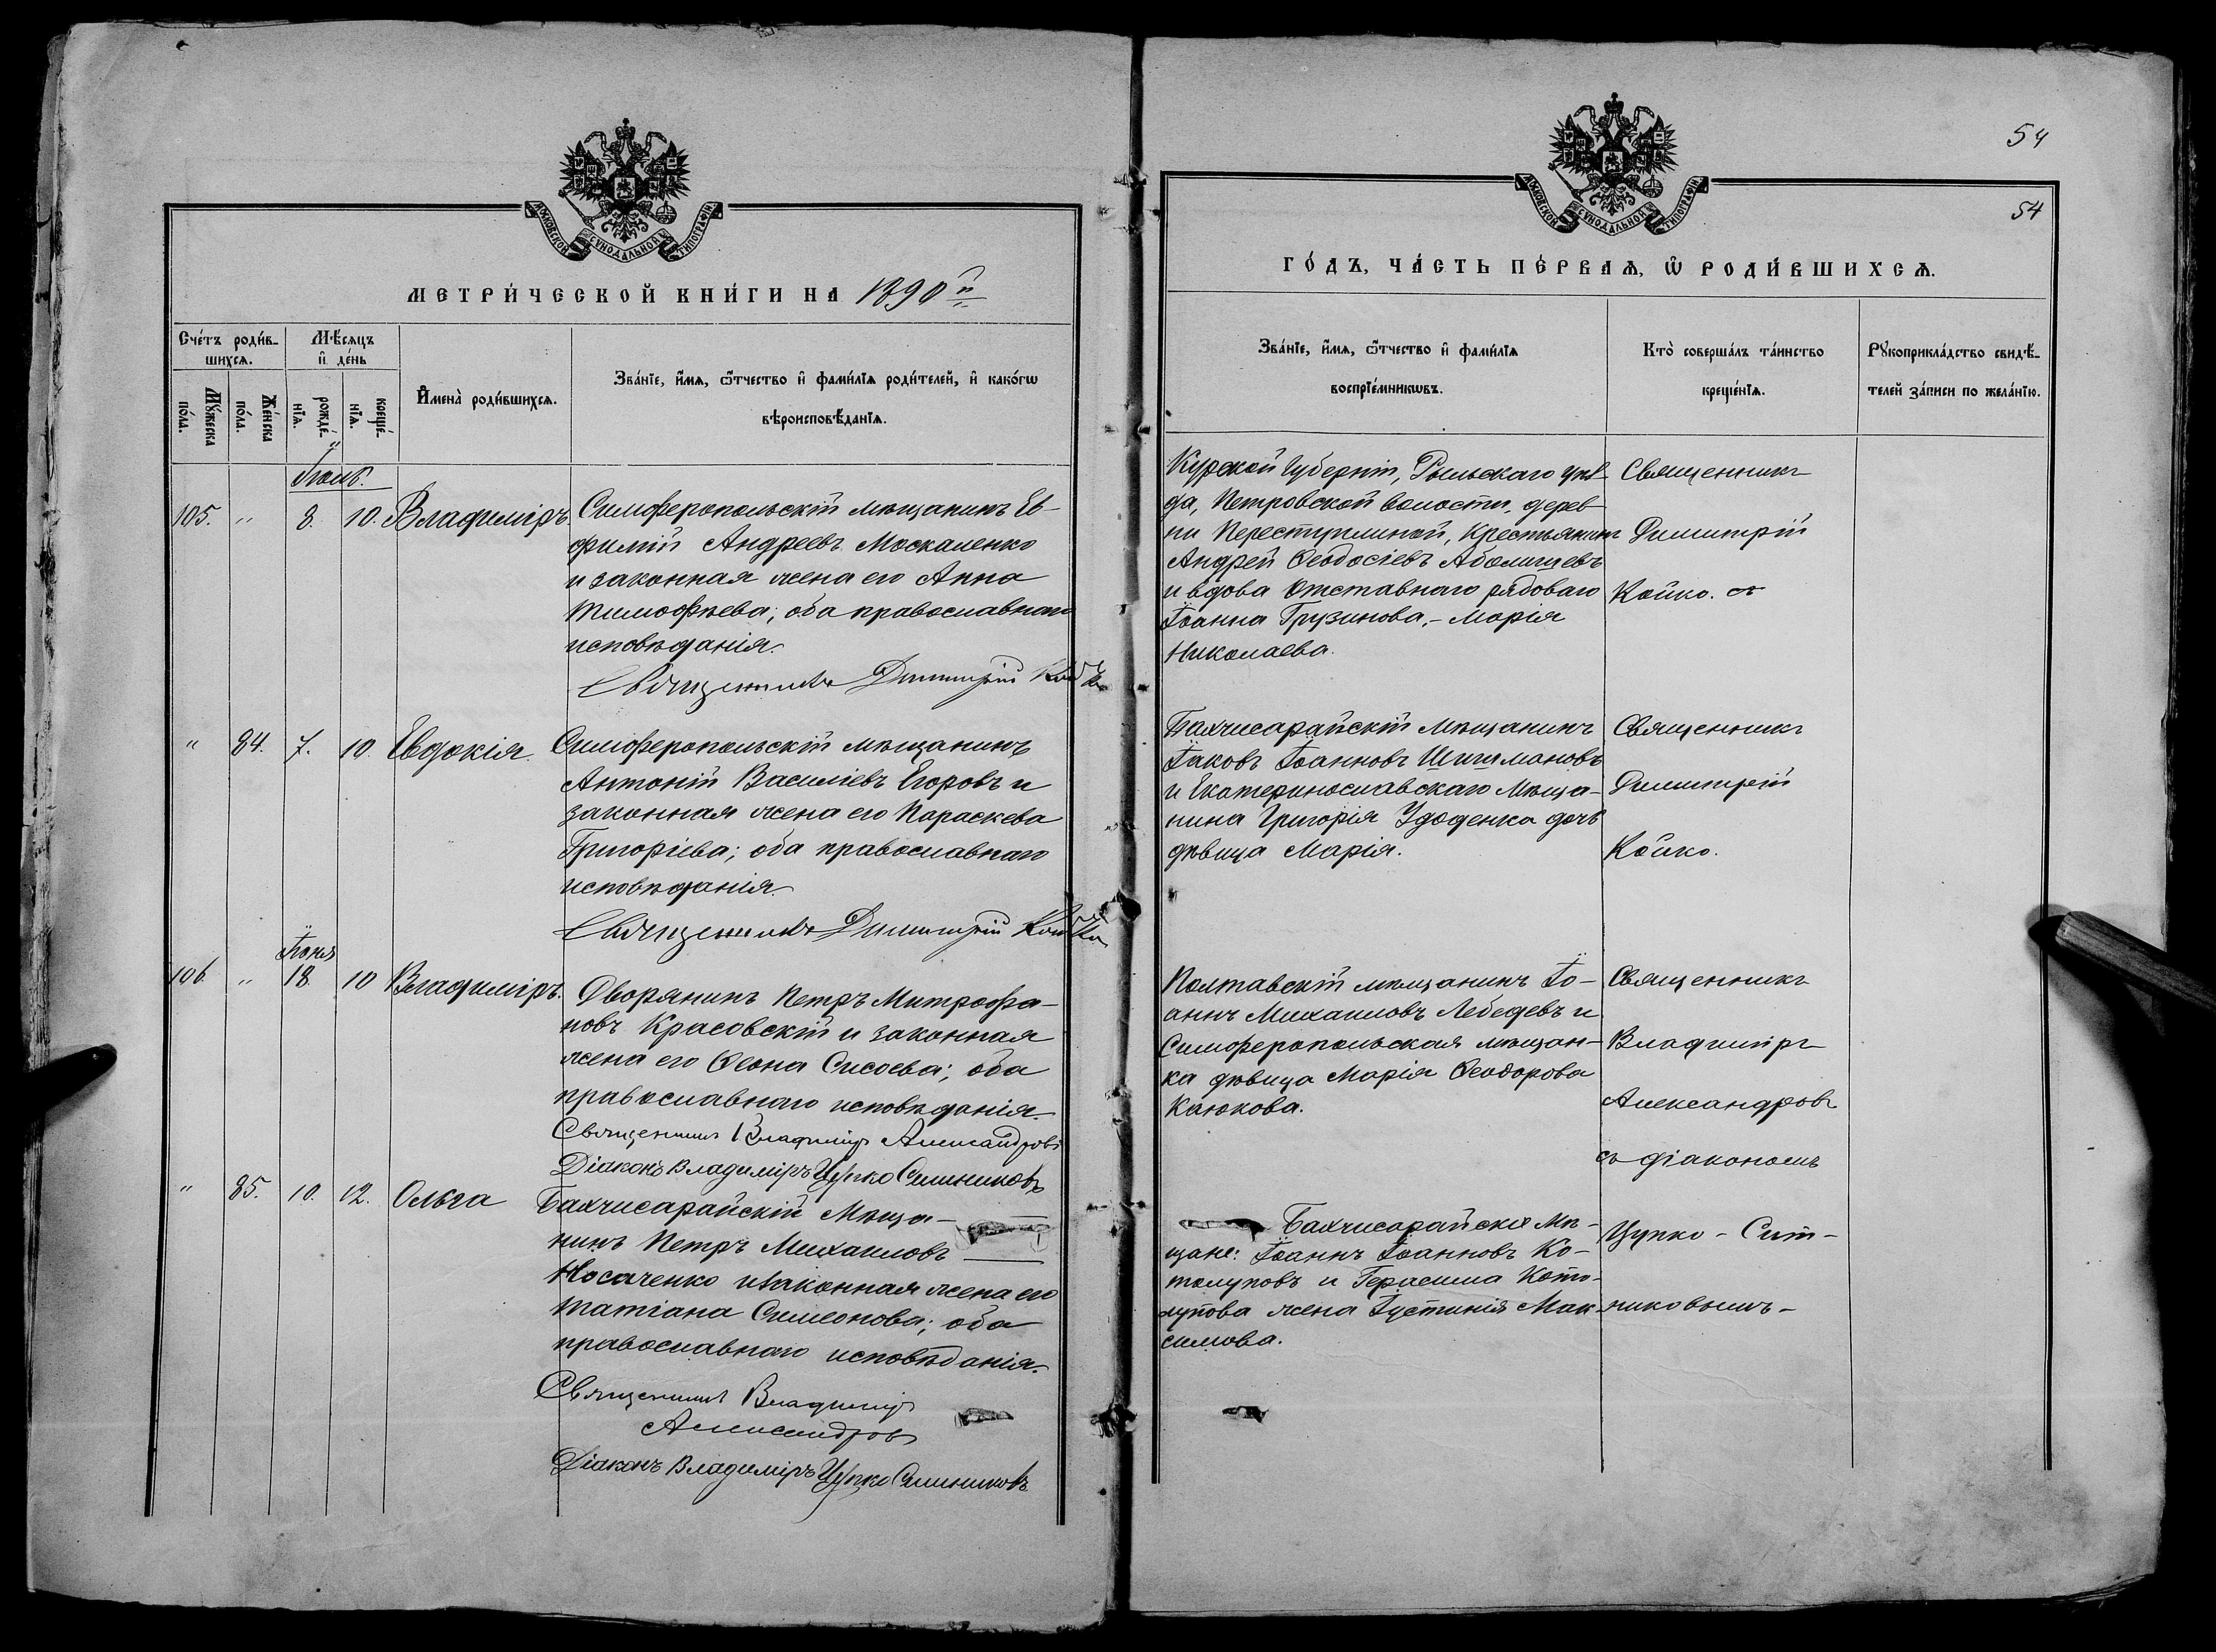 МОСКОВСКОЙ СѴНОДАЛЬНОЙ ТИПОГРАФІИ
МЕТРИ́ЧЕСКОЙ КНИ́ГИ НА 1890й
Сче́тъ роди́в-
шихсѧ.
Мѣ́сѧцъ
и҆ де́нь
Мꙋ́жеска
по́ла.
Же́нска
по́ла.
рожде́-
нїѧ.
креще́-
нїѧ.
И҆мена̀ роди́вшихсѧ.
Зва́нїе, и҆́мѧ, ѻ҆́тчество и҆ фами́лїѧ роди́телей, и҆ како́гѡ
вѣроисповѣ́данїѧ.
Іюль.
105. " 8. 10. Владиміръ
Симферопольскій мѣщанинъ Ев-
фимій Андреевъ Москаленко
и законная жена его Анна
Тимофѣева; оба православнаго
исповѣданія.
Священникъ Димитрій Койко
" 84. 7. 10. Евдокія.
Симферопольскій мѣщанинъ
Антоній Василіевъ Егоровъ и
законная жена его Параскева
Григоріева; оба православнаго
исповѣданія.
Священникъ Димитрій Койко
Іюня
106. " 18. 10 Владиміръ.
Дворянинъ Петръ Митрофа-
новъ Красовскій и законная
жена его Ѳеона Сисоева; оба
православнаго исповѣданія.
Священникъ Владиміръ Александровъ
Діаконъ Владиміръ Цупко Ситниковъ
" 85. 10. 12. Ольга
Бахчисарайскій Мѣща-
нинъ Петръ Михаиловъ
Носаченко и законная жена его
Татіана Симеонова; оба
православнаго исповѣданія.
Священникъ Владиміръ
Александровъ
Діаконъ Владиміръ Цупко Ситниковъ
54
54
МОСКОВСКОЙ СѴНОДАЛЬНОЙ ТИПОГРАФІИ
ГО́ДЪ, ЧА́СТЬ ПЕ́РВАѦ, Ѡ҆ РОДИ́ВШИХСѦ.
Зва́нїе, и҆́мѧ, ѻ҆́тчество и҆ фами́лїѧ
воспрїе́мникѡвъ.
Кто̀ соверша́лъ та́инство
креще́нїѧ.
Рꙋкоприкла́дство свидѣ́-
телей за́писи по жела́нїю.
Курской Губерніи, Рыльскаго уѣз-
да, Петровской волости, дерев-
ни Переступлиной, Крестьянинъ
Андрей Ѳеодосіевъ
и вдова отставнаго рядоваго
Іоанна Грузинова,- Марія
Николаева.
Священникъ
Димитрій
Койко.
Бахчисарайскій Мѣщанинъ
Іаковъ Іоанновъ Шишмановъ
и Екатеринославскаго Мѣща-
нина Григорія Удоденка дочь
дѣвица Марія.
Священникъ
Димитрій
Койко.
Полтавскій мѣщанинъ Іо-
аннъ Михаиловъ Лебедевъ и
Симферопольская мѣщан-
ка дѣвица Марія Ѳеодорова
Каюкова.
Священникъ
Владиміръ
Александровъ
съ діакономъ
Цупко - Сит-
никовымъ-
Бахчисарайскіе Мѣ-
щане: Іоаннъ Іоанновъ Ко-
толуповъ и Герасима Кото-
лупова жена Іустинія Мак-
симова.